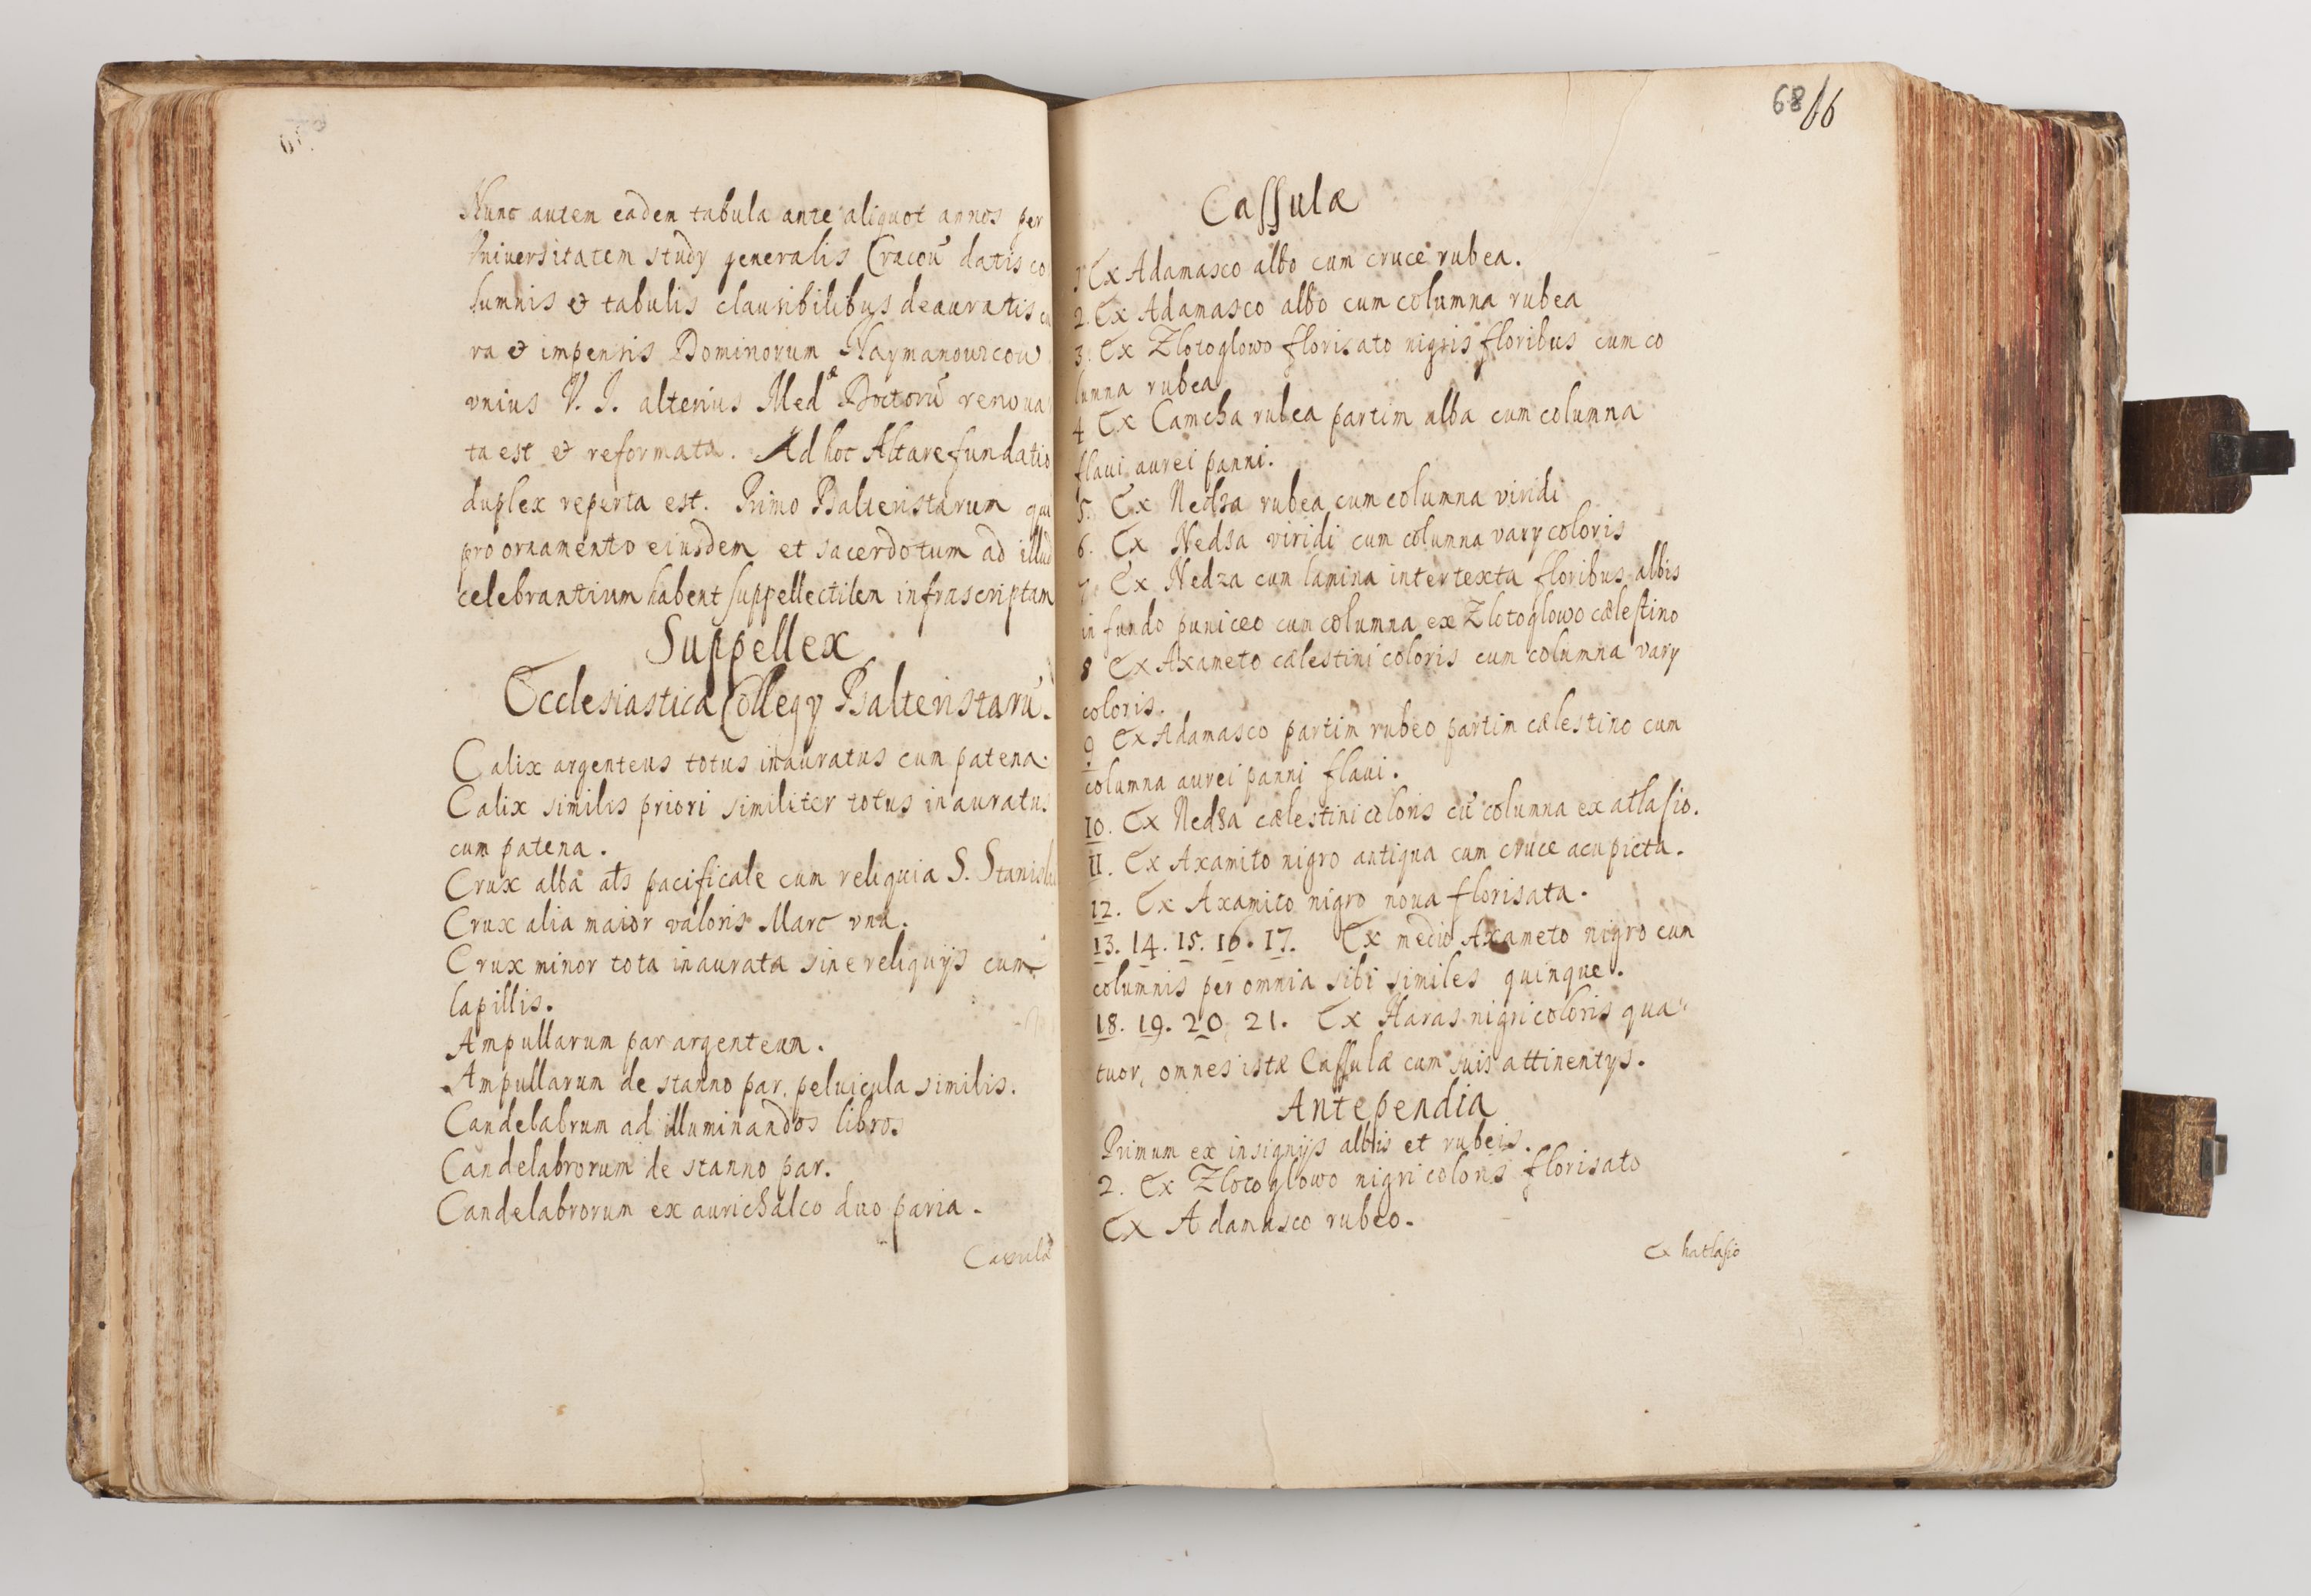 Nunc autem eadem tabula ante aliquot annos per
Vniuersitatem study generalis Cracoū datis co
lumnis & tabulis clausibilibus deauratis cu
ra & impensis Dominorum Naymanowicow
vnius V. I. alterius Med Doctorū renoua
ta est & reformata. Ad hoc Altare fundatio
duplex reperta est. Primo Psalteristarum qui
pro ornamento eiusdem et sacerdotum ad illud
celebrantium habent suppellectilem infrascriptam
Suppellex
Ecclesiastica Collegy Psalteristarū.
Calix argenteus totus inauratus cum patena.
Calix similis priori similiter totus inauratus
cum patena.
Crux alba als pacificale cum reliquia S. Stanisla
Crux alia maior valoris Marc vna.
Crux minor tota inaurata sine reliquijs cum
lapillis.
Ampullarum par argenteum.
Ampullarum de stanno par, peluicula similis.
Candelabrum ad illuminandos libros
Candelabrorum de stanno par.
Candelabrorum ex aurichalco duo paria.
Cassulæ
68 66
Cassulæ
1 Ex Adamasco albo cum cruce rubea.
2. Ex Adamasco albo cum columna rubea
3. Ex Zlotoglowo florisato nigris floribus cum co
lumna rubea
4 Ex Camcha rubea partim alba cum columna
flaui aurei panni.
5. Ex Nedza rubea cum columna viridi
6. Ex Nedza viridi cum columna vary coloris
7 Ex Nedza cum lamina intertexta floribus albis
in fundo puniceo cum columna ex Zlotoglowo cælestino
8 Ex Axameto cælestini coloris cum columna vary
coloris.
9 Ex Adamasco partim rubeo partim cælestino cum
columna aurei panni flaui.
10. Ex Nedza cælestini coloris cū columna ex atlasio.
11. Ex Axamito nigro antiqua cum cruce acu picta.
12. Ex Axamito nigro noua florisata.
13. 14. 15. 16. 17. Ex medio Axameto nigro cum
columnis per omnia sibi similes quinque.
18. 19. 20. 21. Ex Haras nigri coloris qua
tuor, omnes istæ Cassulæ cum suis attinentys.
Antependia
Primum ex insignijs albis et rubeis.
2. Ex Zlotoglowo nigri coloris florisato
Ex Adamasco rubeo.
Ex hatlasio